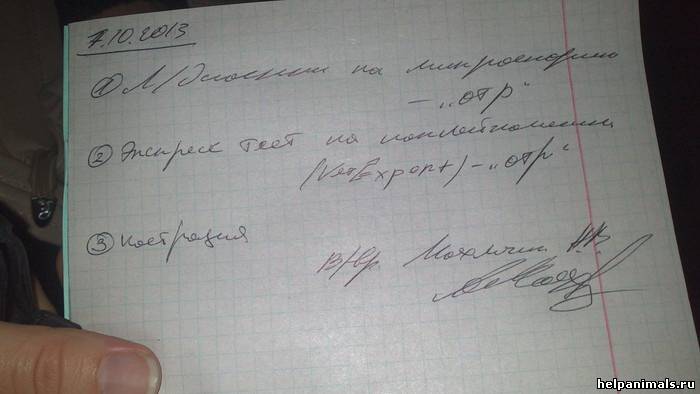 7.10.2013
① Л/Диагностика на микроспорию
– „отр“
② Экспресс тест на панлейкопению
(VetExpert) – „отр“
③ Кастрация
В/вр.
helpanimals.ru